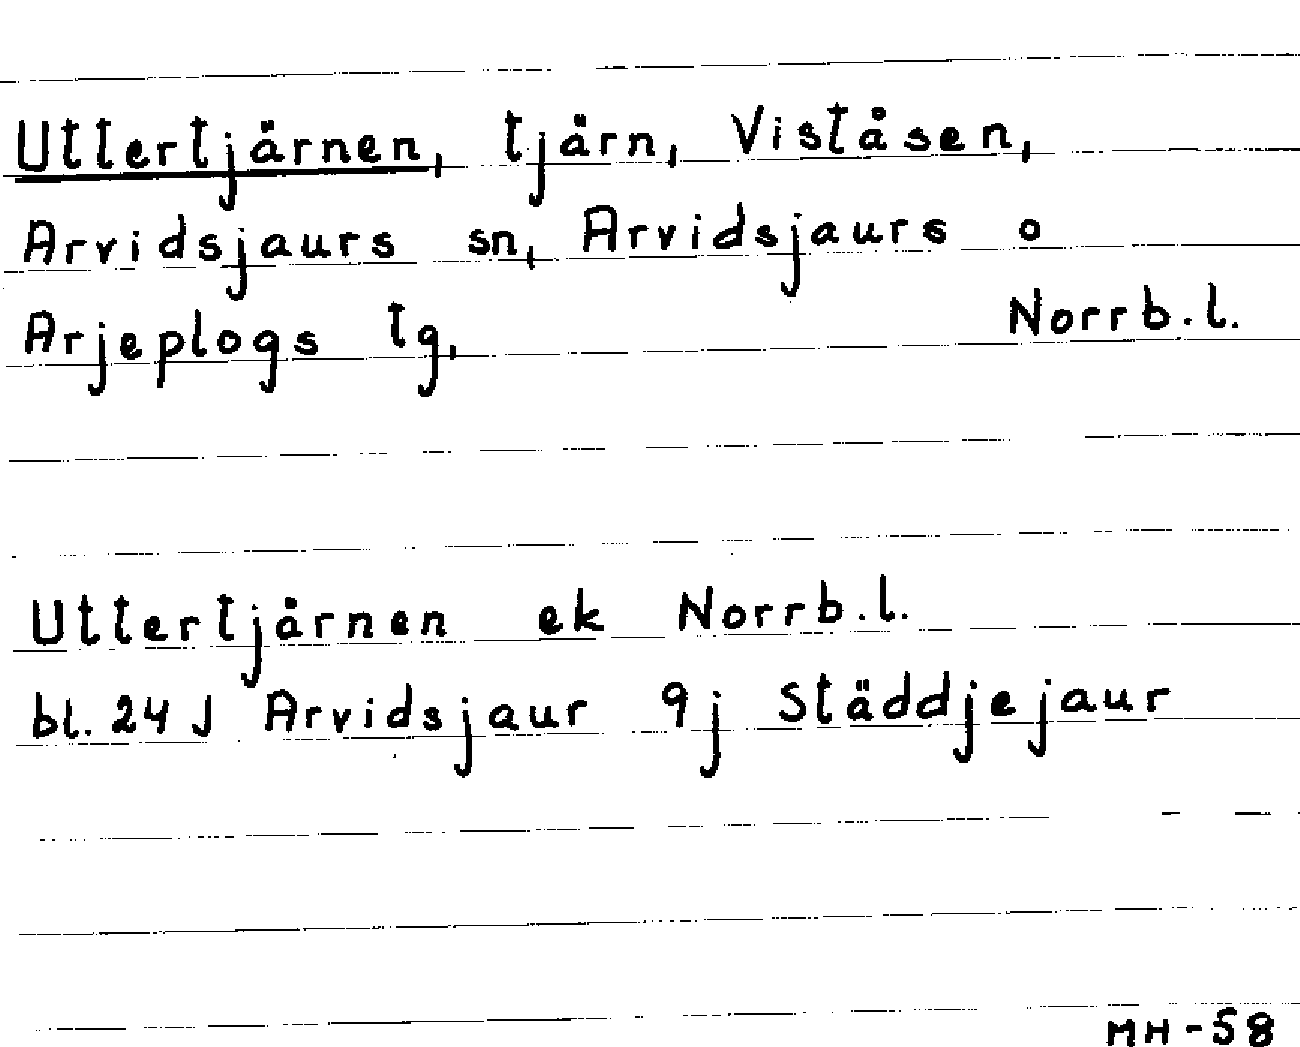 Uttertjärnen, tjärn, Viståsen,
Arvidsjaurs sn, Arvidsjaurs o
Arjeplogs tg, Norrb.l.
Uttertjärnen ek Norrb.l.
bl. 24 J Arvidsjaur 9j Städdjejaur
MH-58